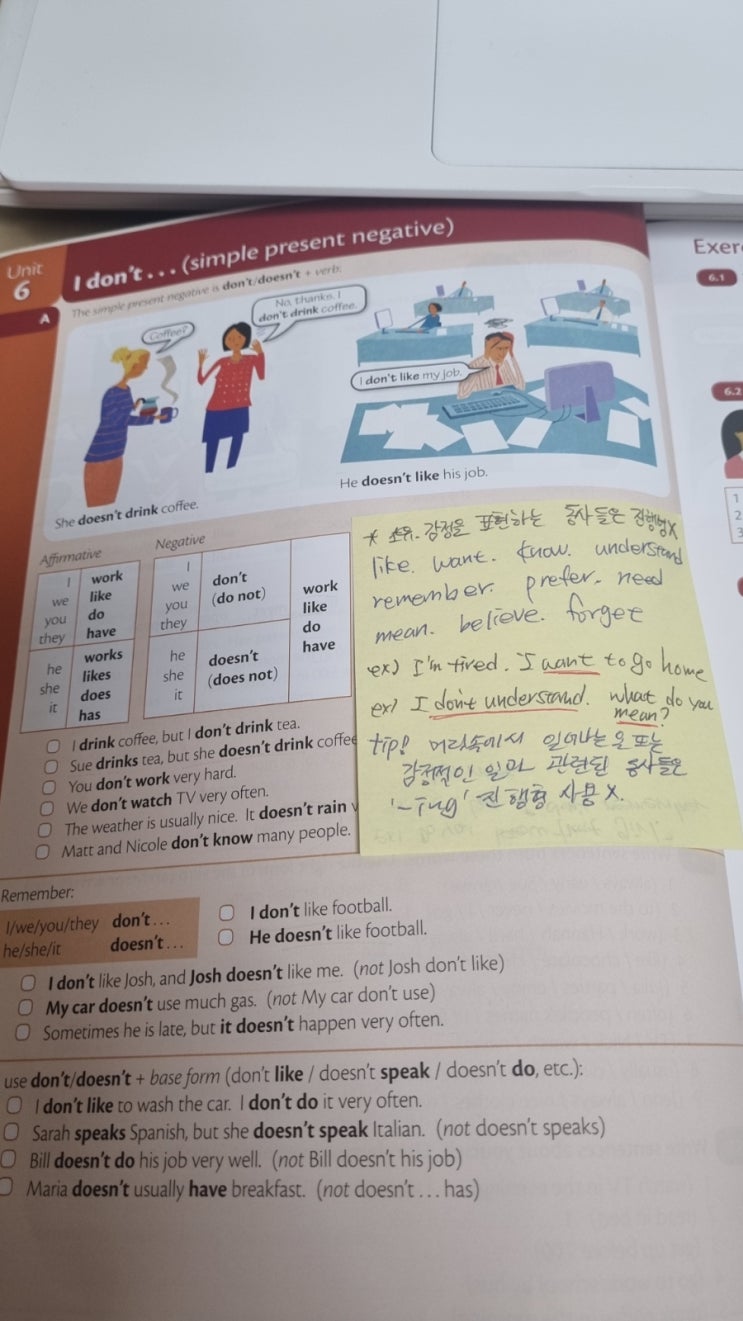 Unit
6
I don't . . . (simple present negative)
A
The simple present negative is don't/doesn't + verb:
Coffee?
No, thanks. I
don't drink coffee.
I don't like my job.
She doesn't drink coffee.
He doesn't like his job.
Affirmative
I
we
you
they
work
like
do
have
he
she
it
works
likes
does
has
Negative
I
we
you
they
don't
(do not)
he
she
it
doesn't
(does not)
work
like
do
have
* 소유. 감정을 표현하는 동사들은 진행형X
like. want. know. understand
remember. prefer. need
mean. believe. forget
ex) I'm tired. I want to go home
ex) I don't understand. what do you
mean?
tip! 머리속에서 일어나는 일 또는
감정적인 일과 관련된 동사들은
'-ing' 진행형 사용 X.
I drink coffee, but I don't drink tea.
Sue drinks tea, but she doesn't drink coffee
You don't work very hard.
We don't watch TV very often.
The weather is usually nice. It doesn't rain
Matt and Nicole don't know many people.
Remember:
I/we/you/they don't . . .
he/she/it doesn't . . .
I don't like football.
He doesn't like football.
I don't like Josh, and Josh doesn't like me. (not Josh don't like)
My car doesn't use much gas. (not My car don't use)
Sometimes he is late, but it doesn't happen very often.
use don't/doesn't + base form (don't like / doesn't speak / doesn't do, etc.):
I don't like to wash the car. I don't do it very often.
Sarah speaks Spanish, but she doesn't speak Italian. (not doesn't speaks)
Bill doesn't do his job very well. (not Bill doesn't his job)
Maria doesn't usually have breakfast. (not doesn't . . . has)
Exer
6.1
6.2
1
2
3